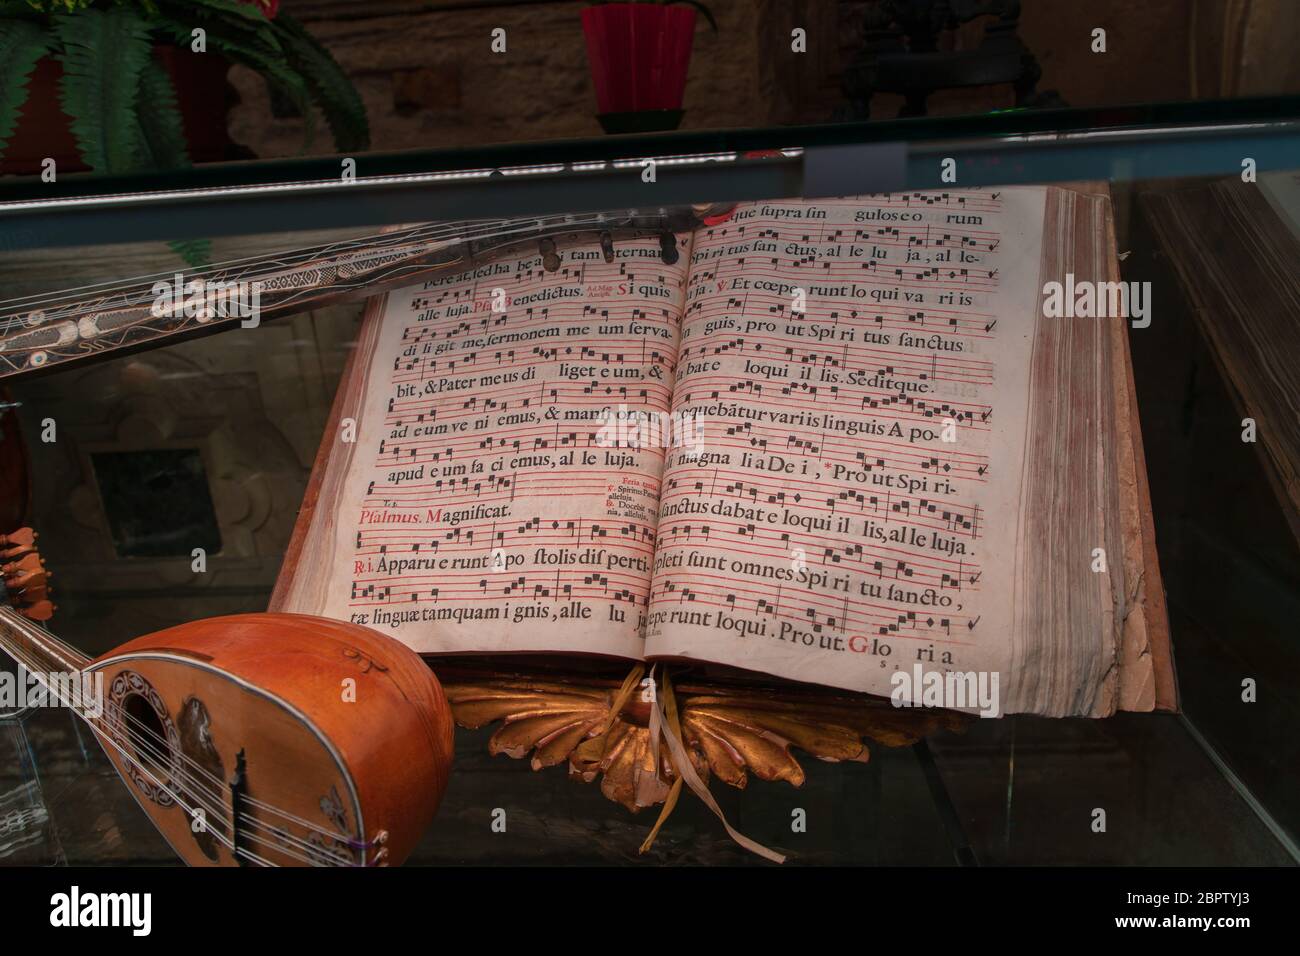 Pere at, sed ha be a i tam eternam
alle luja. Psal. Benedictus. Ad Mag. Antiph. Si quis
di li git me, sermonem me um serva-
bit, & Pater meus di liget e um, &
ad e um ve ni emus, & mansi onem
apud e um fa ci emus, al le luja.
Psalmus. Magnificat.
Feria tertia.
℣. Spiritus Pa
alleluja.
℟. Docebit vos
nia, alleluja.
℟. i. Apparu e runt Apo stolis dis perti-
tæ linguæ tamquam i gnis, alle lu ja
que supra sin gulos e o rum
Spi ri tus san ctus, al le lu ja, al le-
ja. ℣. Et cœpe runt lo qui va ri is
guis, pro ut Spi ri tus sanctus
bat e loqui il lis. Seditque.
oquebãtur variis linguis A po-
li magna li a De i, * Pro ut Spi ri-
sanctus dabat e loqui il lis, al le luja.
pleti sunt omnes Spi ri tu sancto,
epe runt loqui. Pro ut. Glo ri a
alamy
alamy
Image ID: 2BPTYJ3
www.alamy.com